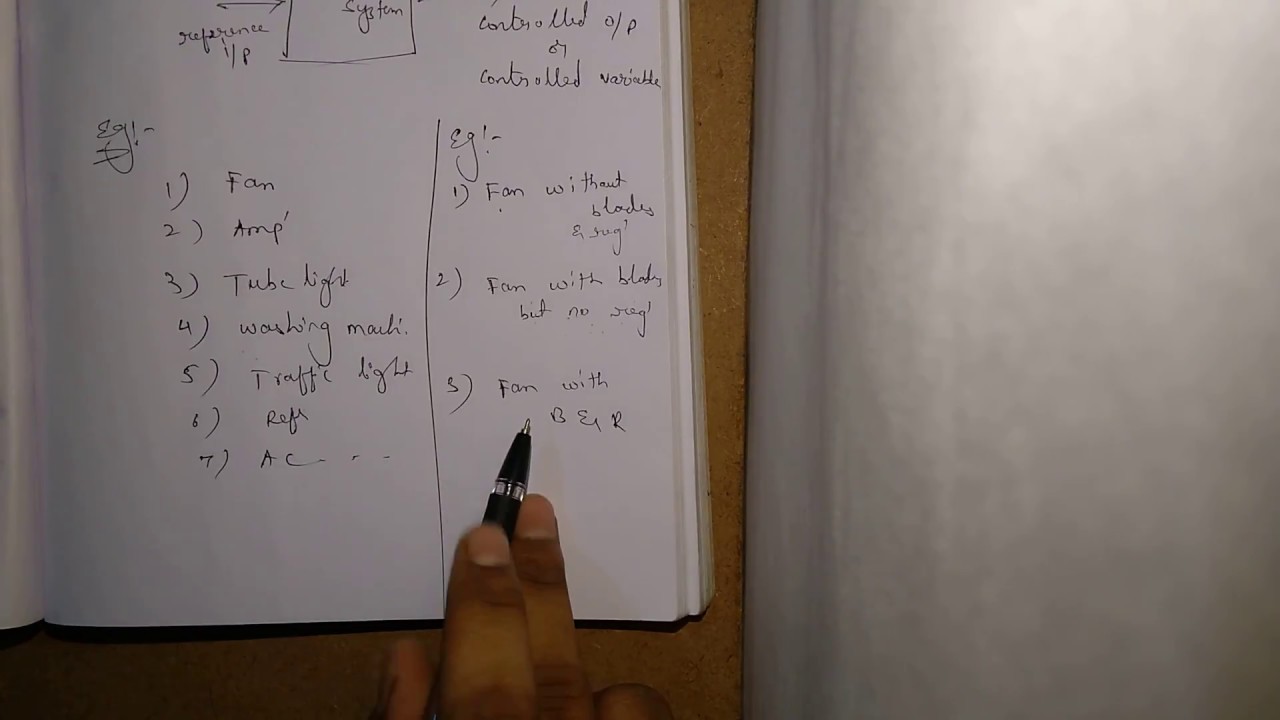 System
reference
i/p
controlled o/p
or
controlled variable
Eg:-
1) Fan
2) Amp'
3) Tube light
4) washing machi.
5) Traffic light
6) Refr
7) AC - - -
Eg:-
1) Fan without
blades
& reg'
2) Fan with blades
but no reg'
3) Fan with
B & R